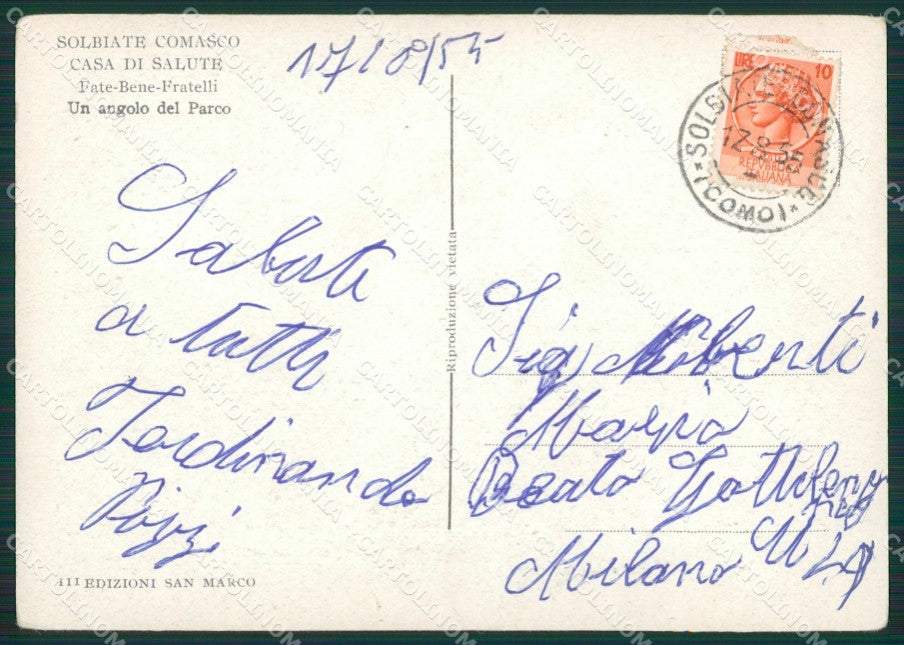 SOLBIATE COMASCO
CASA DI SALUTE
Fate-Bene-Fratelli
Un angolo del Parco
17/8/55
LIRE 10
REPVBBLICA
ITALIANA
SOLBIATE COMASCO
17.8.55
(COMO)
Saluti
a tutti
Ferdinando
Pizzi
Riproduzione vietata
Sig
Maria
Beato
Milano
111 EDIZIONI SAN MARCO
CARTOLINOMANIA